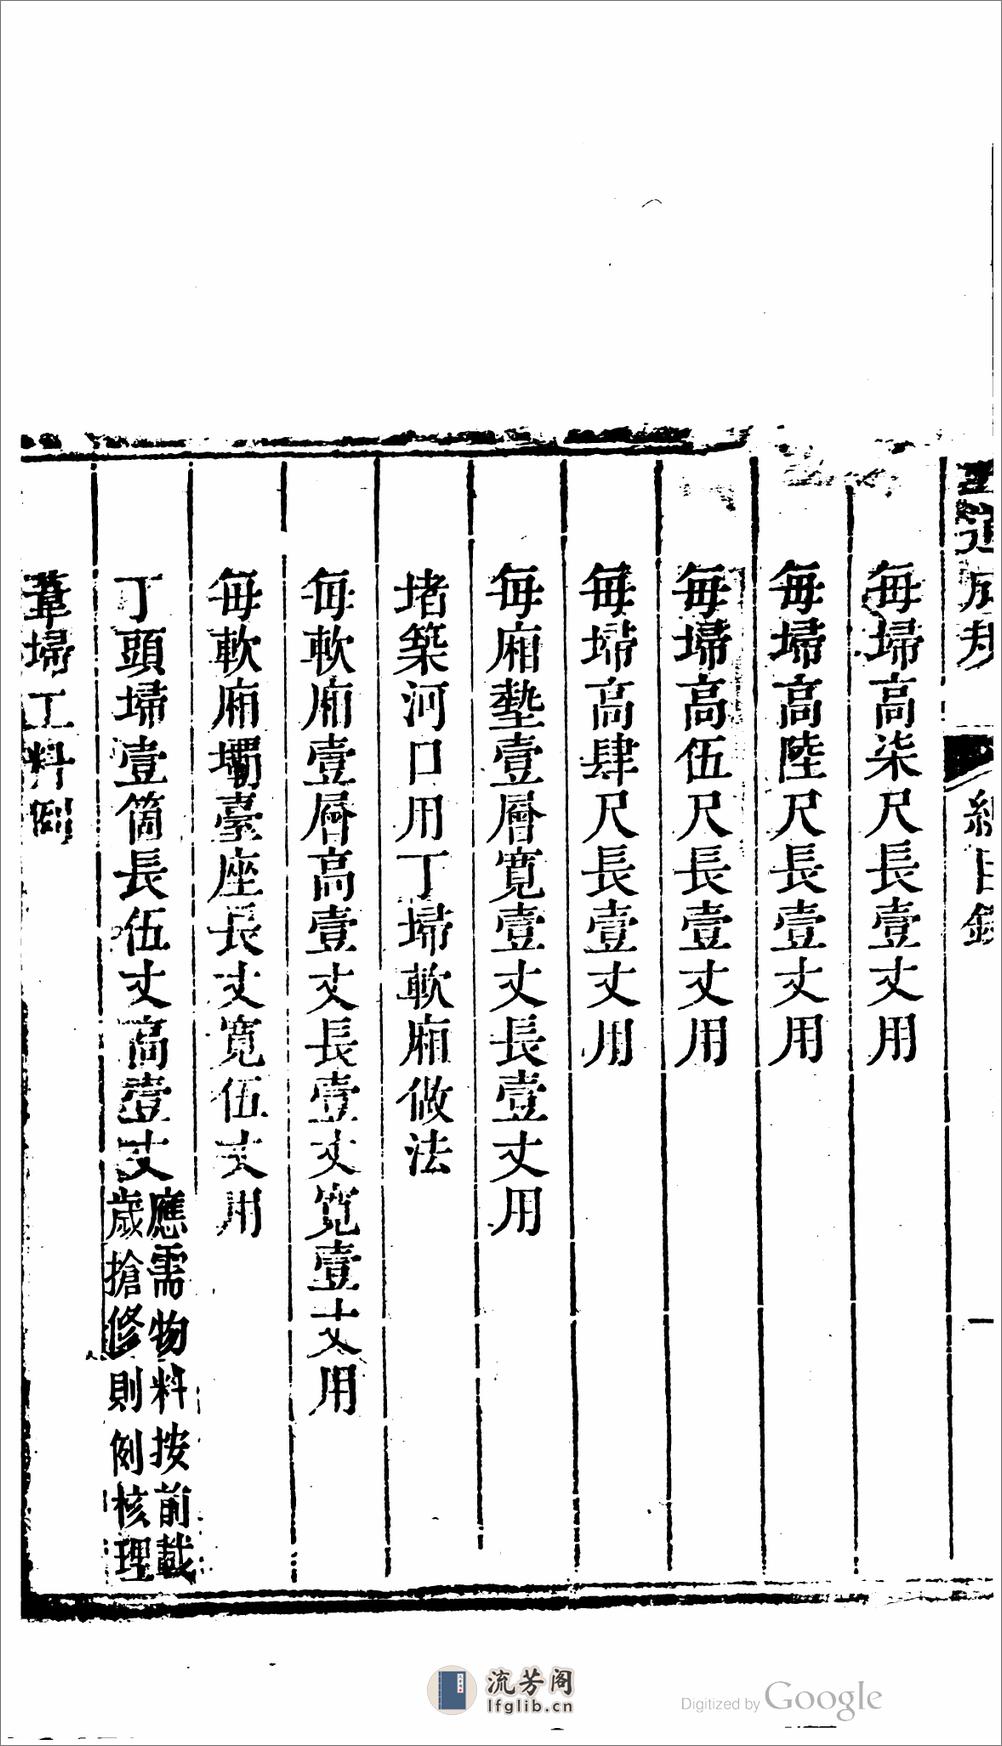 每埽高柒尺長壹丈用
每埽高陸尺長壹丈用
每埽高伍尺長壹丈用
每埽高肆尺長壹丈用
每廂墊壹層寬壹丈長壹丈用
堵築河口用丁埽軟廂做法
每軟廂壹層高壹丈長壹丈寬壹丈用
每軟廂壩臺座長丈寬伍丈用
丁頭埽壹箇長伍丈高壹丈
應需物料按前載
歲搶修則例核理
葦埽工料例
總目錄
一
流芳阁
lfglib.cn
Digitized by Google